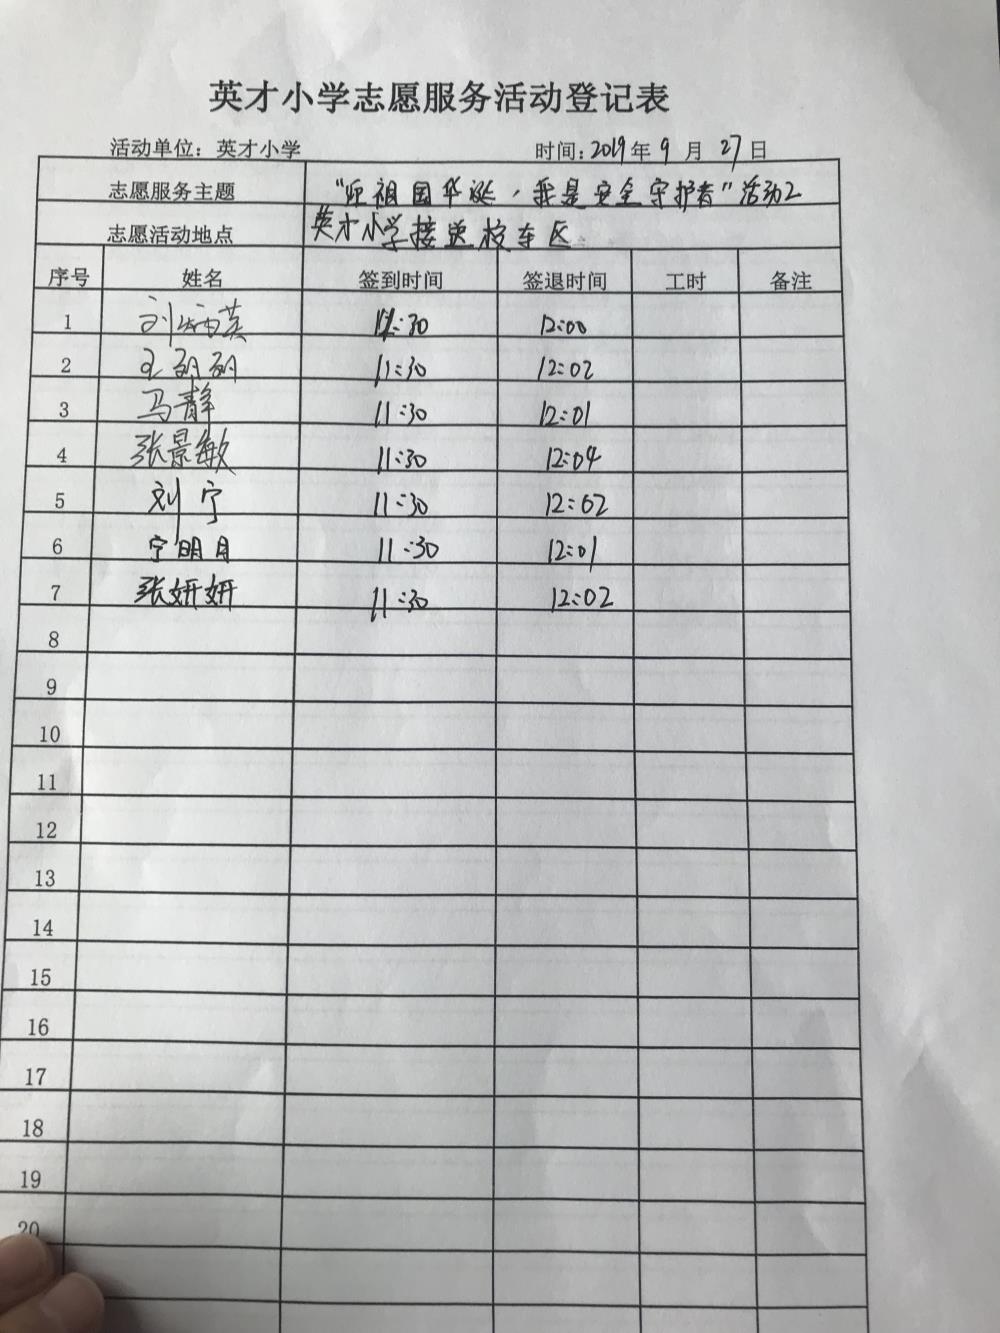 英才小学志愿服务活动登记表
活动单位：英才小学 时间：2019年9月27日
志愿服务主题 "迎祖国华诞，我是安全守护者"活动2
志愿活动地点 英才小学接送校车区
序号 姓名 签到时间 签退时间 工时 备注
1 刘炳英 11:30 12:00
2 王玥玥 11:30 12:02
3 马静 11:30 12:01
4 张景敏 11:30 12:04
5 刘宁 11:30 12:02
6 宁明月 11:30 12:01
7 张妍妍 11:30 12:02
8
9
10
11
12
13
14
15
16
17
18
19
20